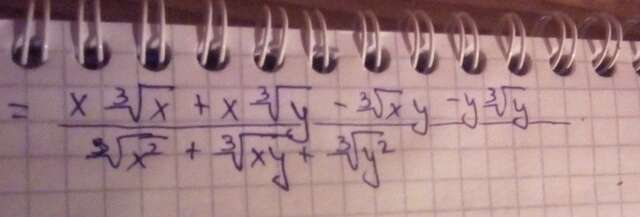 = \frac{x \sqrt[3]{x} + x \sqrt[3]{y} - \sqrt[3]{x} y - y \sqrt[3]{y}}{\sqrt[3]{x^2} + \sqrt[3]{xy} + \sqrt[3]{y^2}}